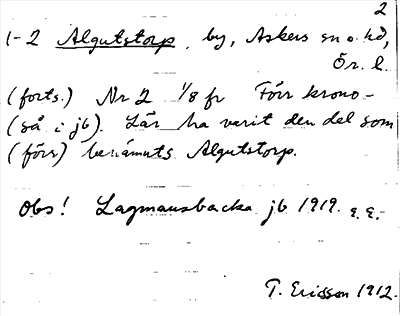 2
1-2 Algutstorp, by, Askers sn o. hd,
Ör. l.
(forts.) Nr 2 1/8 fr Förr krono-
(så i jb). Lär ha varit den del som
(förs) benämnts Algutstorp.
Obs! Lagmansbacka jb 1919. e.e.-
T. Ericsson 1912.